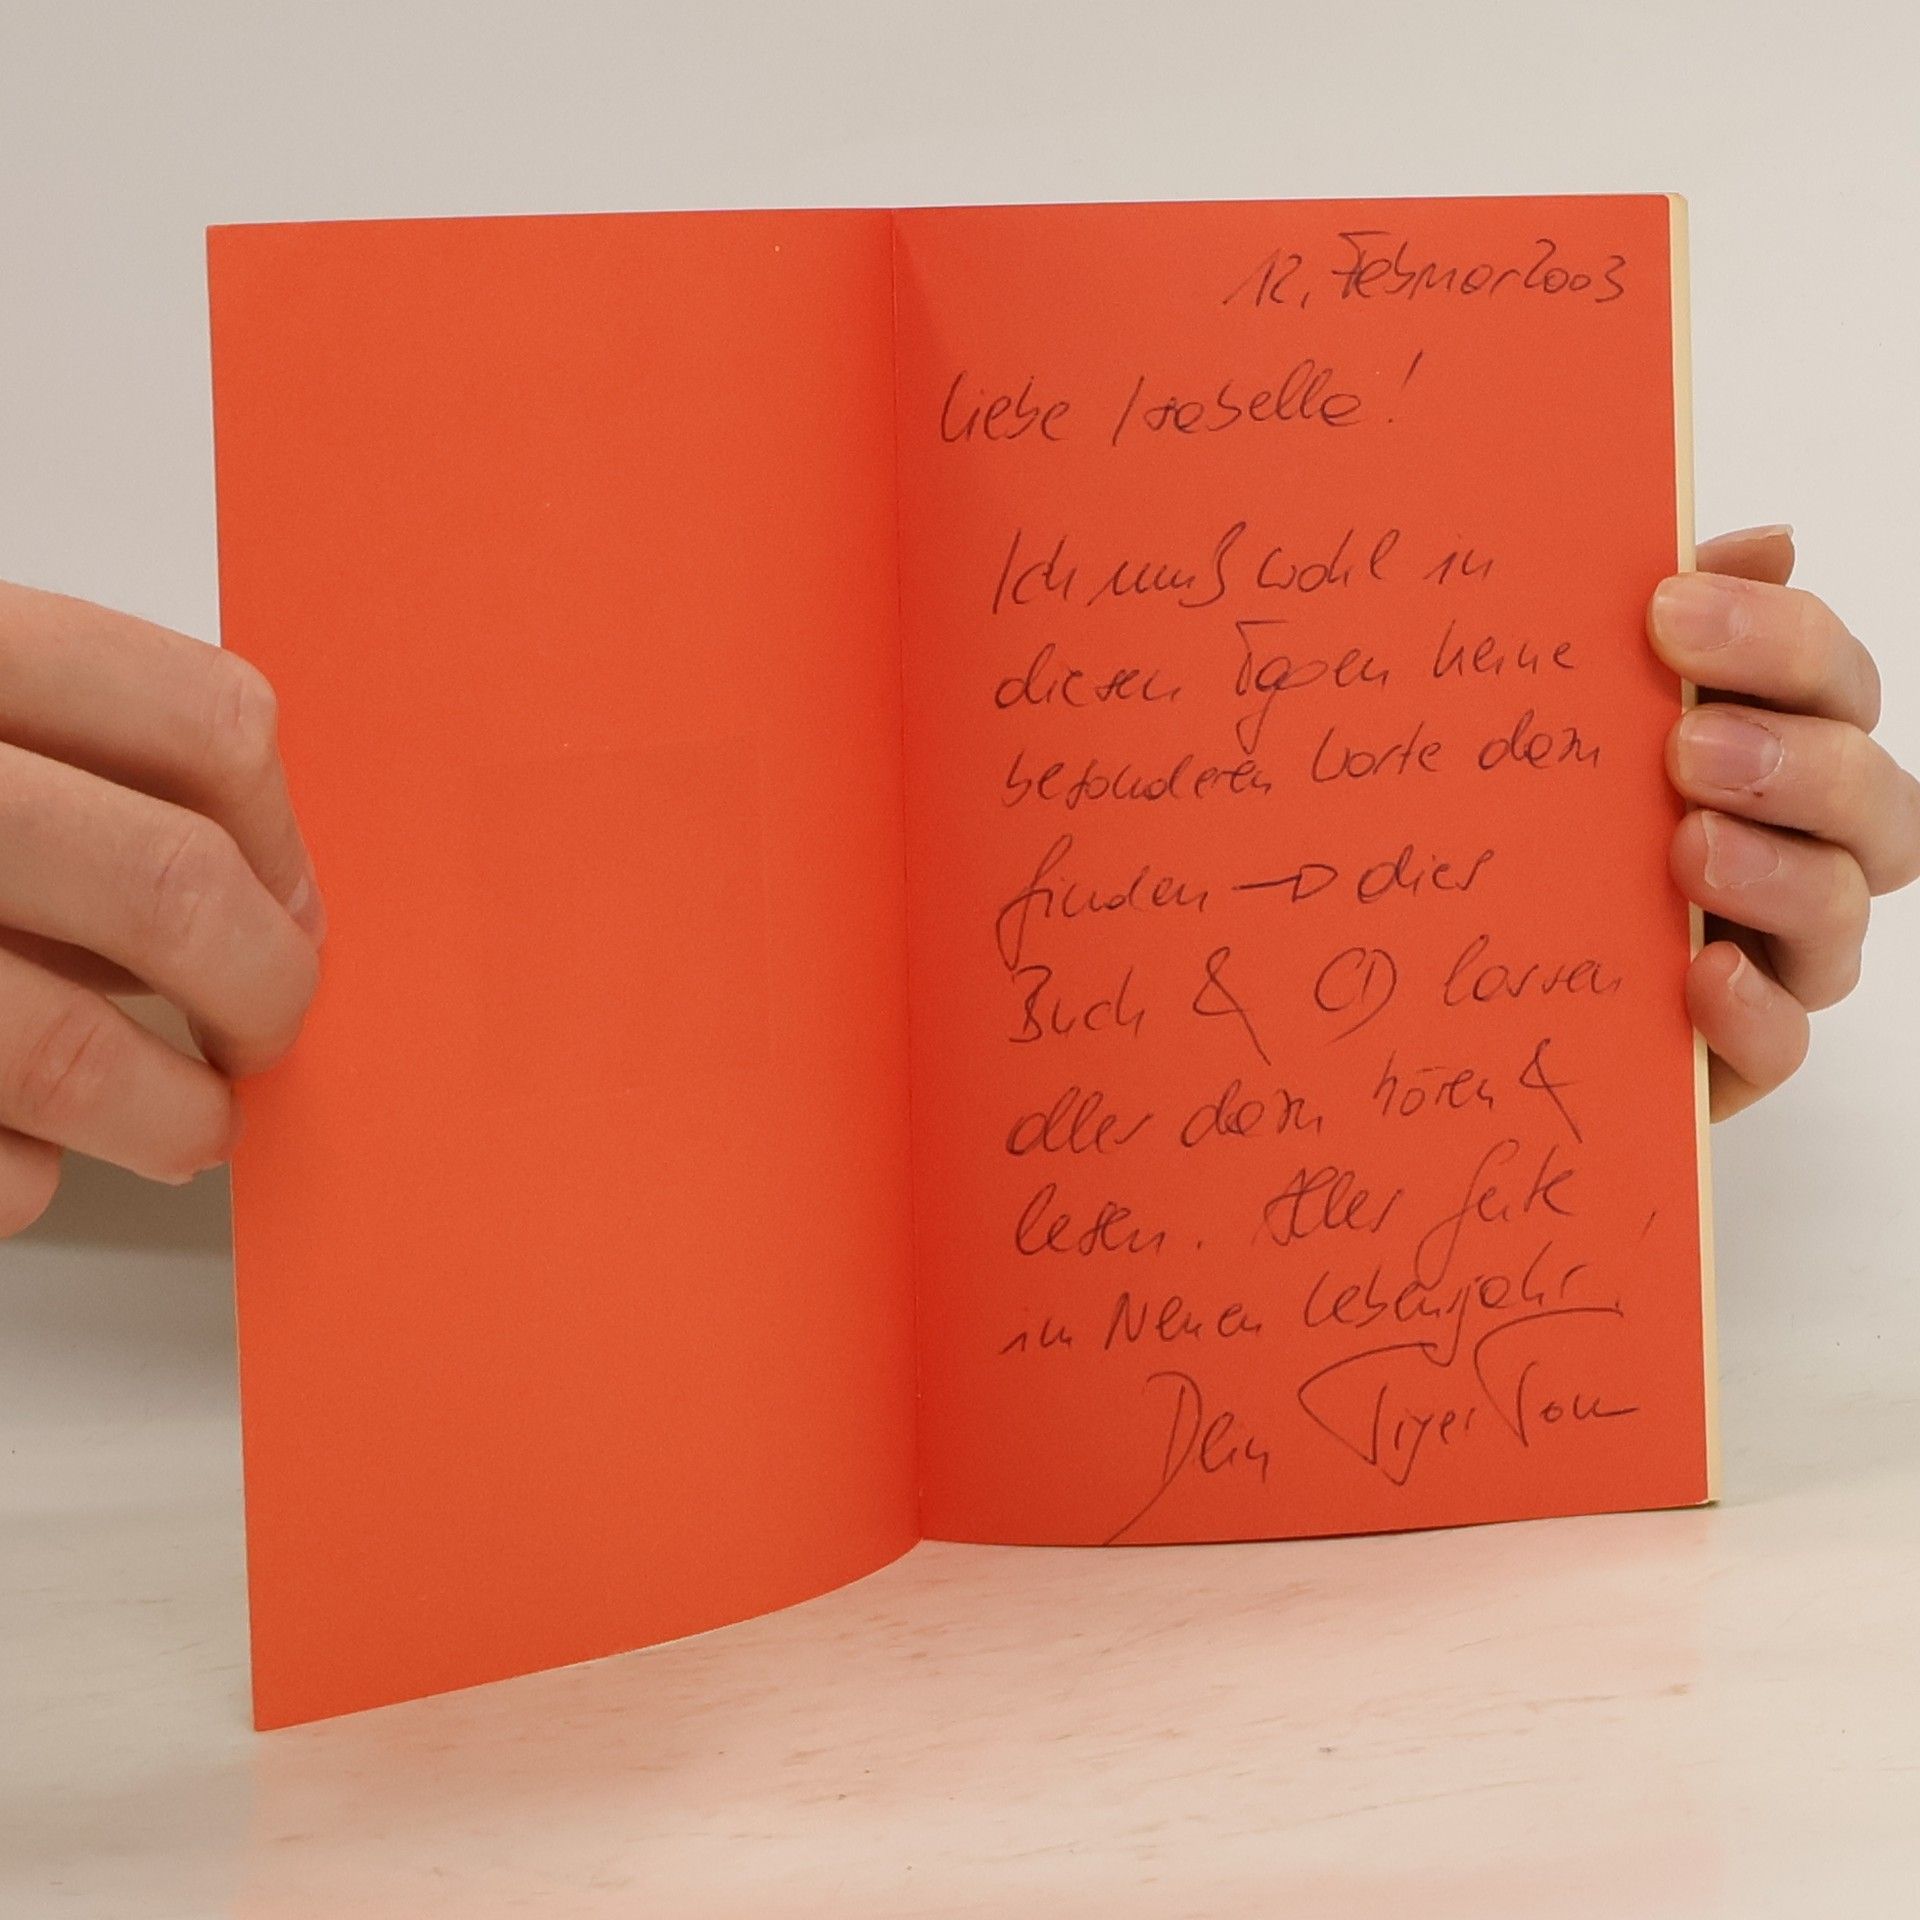 12. Februar 2003
Liebe Isabella!
Ich muß wohl in
diesen Tagen keine
besonderen Worte dazu
finden → dies
Buch & CD lassen
alles dazu hören &
lesen. Alles Gute
im Neuen Lebensjahr!
Dein Tiger Tom